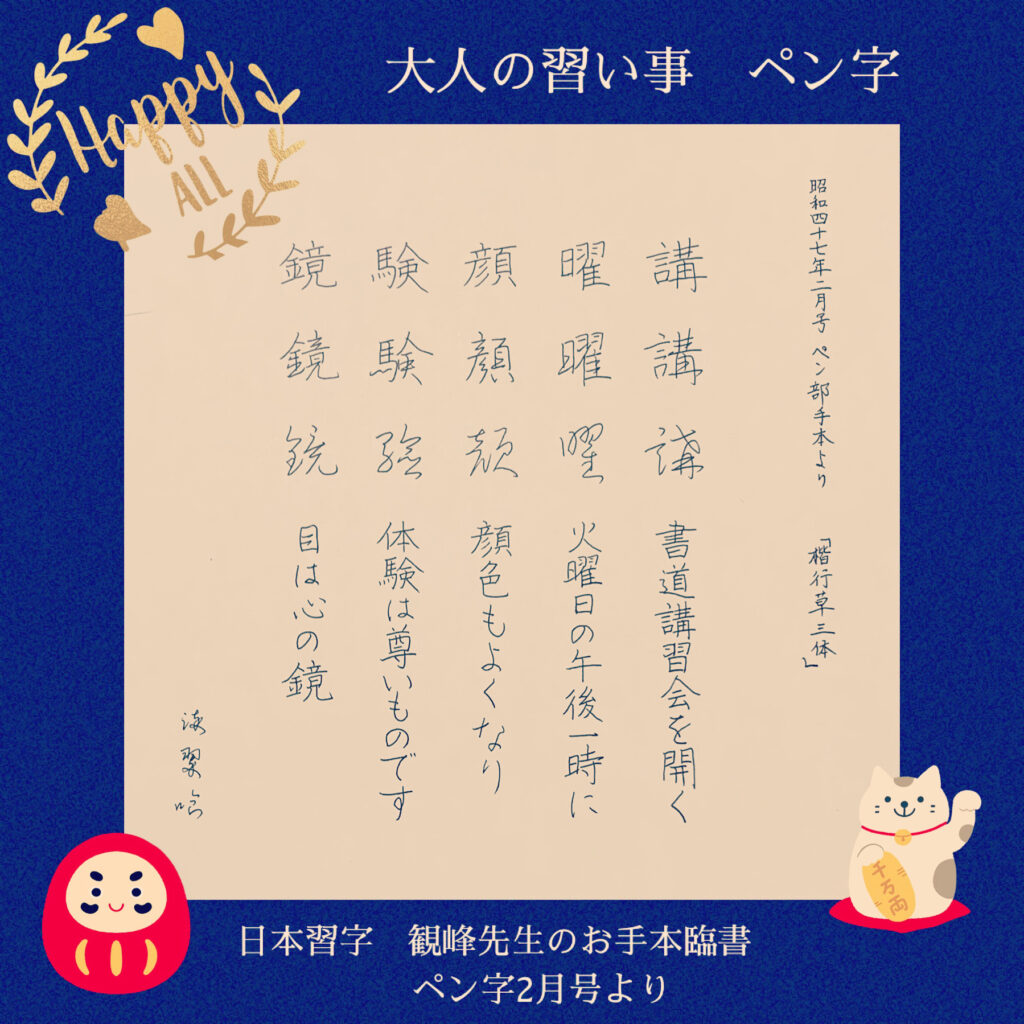 Happy
ALL
大人の習い事　ペン字
昭和四十七年二月号 ペン部手本より　「楷行草三体」
講講講 書道講習会を開く
曜曜曜 火曜日の午後一時に
顔顔顔 顔色もよくなり
験験験 体験は尊いものです
鏡鏡鏡 目は心の鏡
千万両
日本習字　観峰先生のお手本臨書
ペン字2月号より